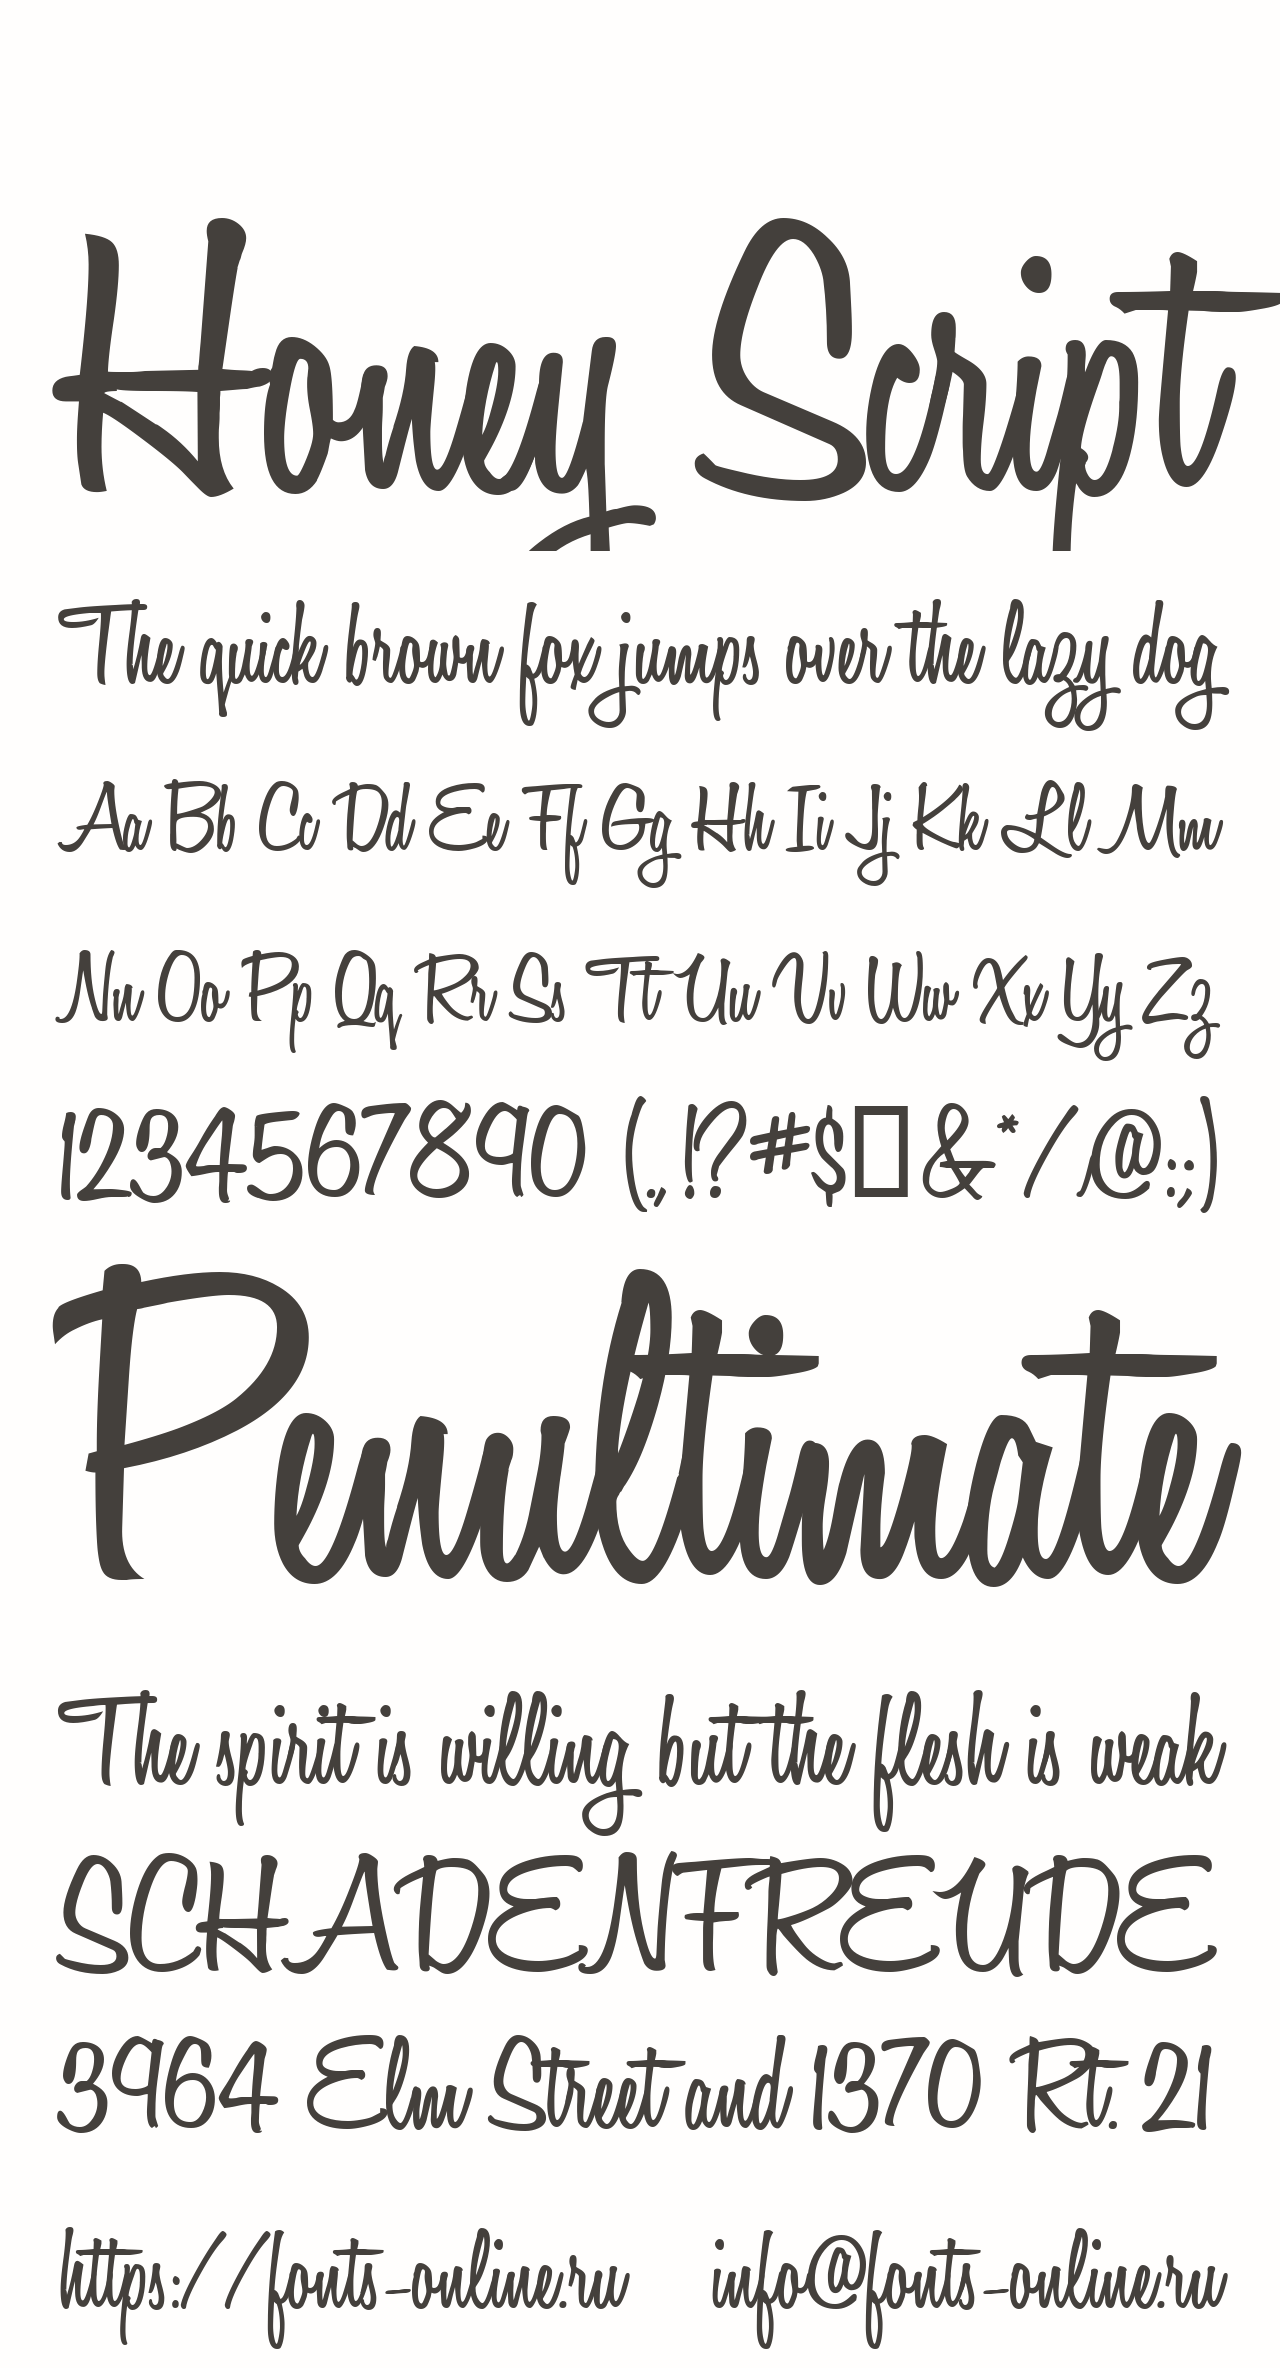 Honey Script
The quick brown fox jumps over the lazy dog
Aa Bb Cc Dd Ee Ff Gg Hh Ii Jj Kk Ll Mm
Nn Oo Pp Qq Rr Ss Tt Uu Vv Ww Xx Yy Zz
1234567890 (.,!?#$□&*/@:;)
Penultimate
The spirit is willing but the flesh is weak
SCHADENFREUDE
3964 Elm Street and 1370 Rt. 21
https://fonts-online.ru info@fonts-online.ru